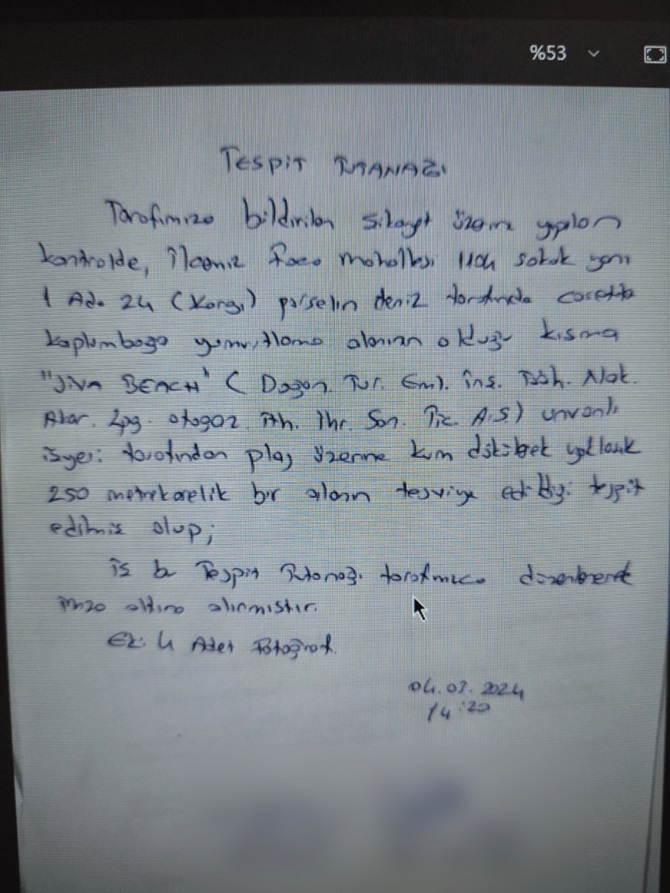 %53
Tespit TUTANAĞI
Tarafımıza bildirilen şikayet üzerine yapılan
kontrolde, İlçemiz Foça mahallesi 1104 sokak yanı
1 Ada 24 (Kargı) parselin deniz tarafında caretta
kaplumbağa yumurtlama alanının olduğu kısma
"JİVA BEACH" ( Dogan. Tur. Eml. İnş. Nak.
Akar. otogaz. İth. İhr. San. Tic. A.Ş) unvanlı
işyeri tarafından plaj üzerine kum dökülerek yaklaşık
250 metrekarelik bir alanın tesviye edildiği tespit
edilmiş olup;
iş bu Tespit Tutanağı tarafımızca düzenlenerek
imza altına alınmıştır.
Ek: 4 Adet Fotoğraf.
04.03.2024
14:20